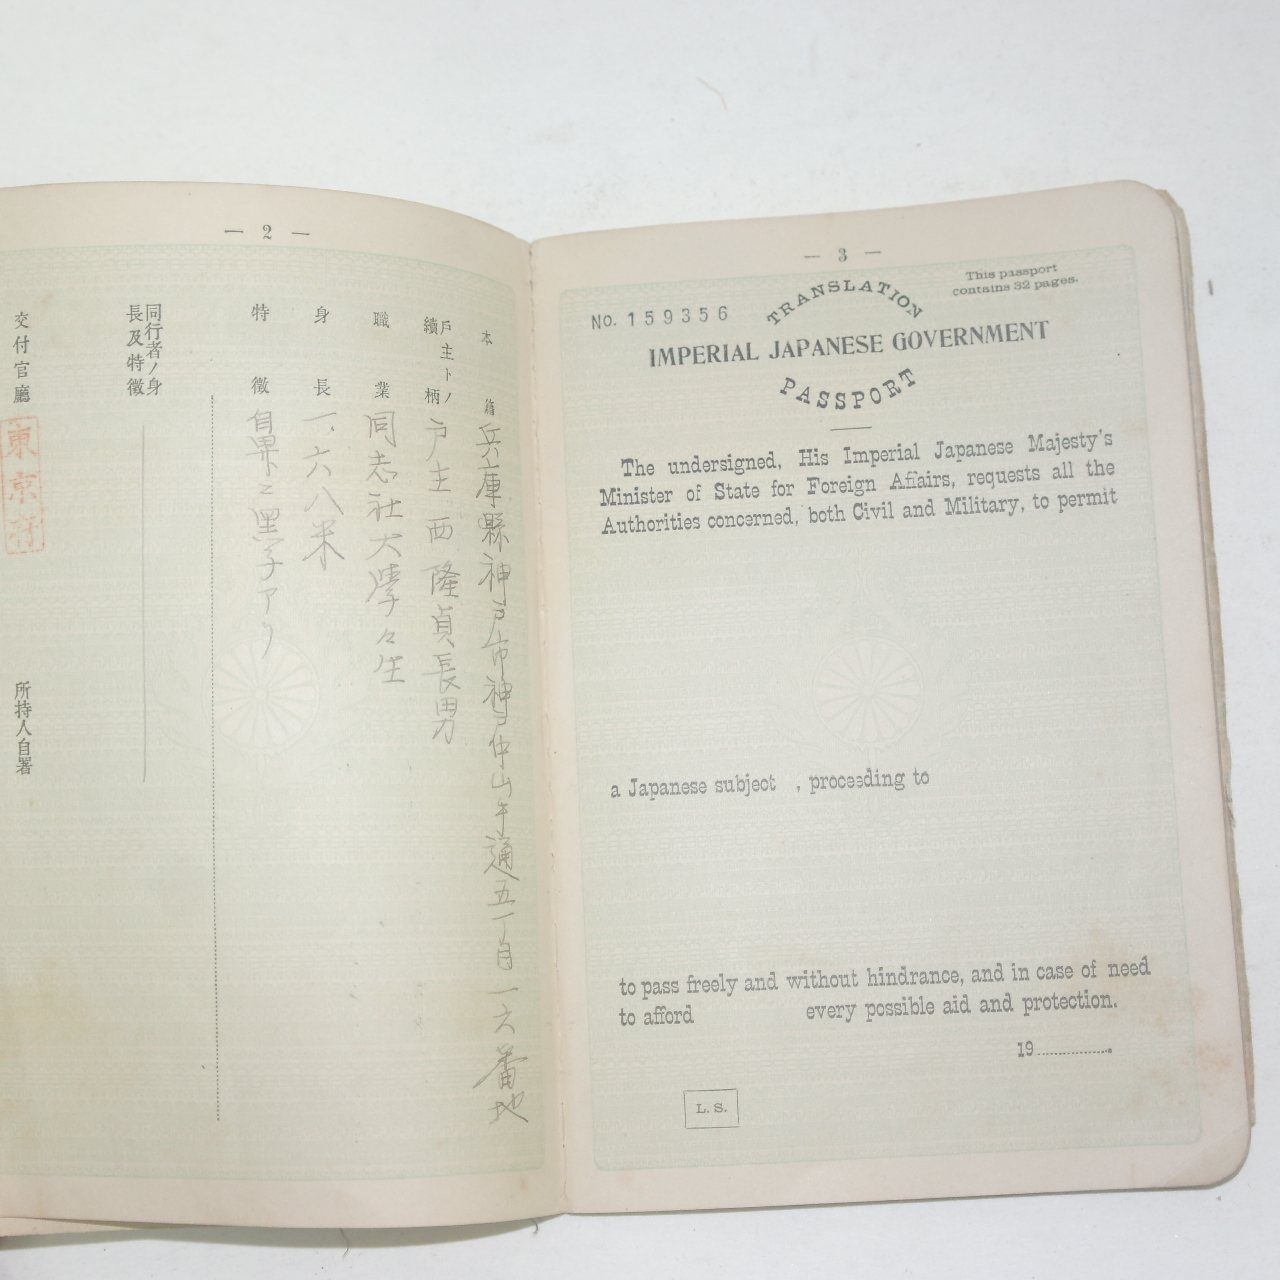 — 2 —
本籍 兵庫縣神戸市神戸中山手通五丁目一六番地
戶主トノ續柄 戸主 西隆貞長男
職業 同志社大學々生
身長 一、六八米
特徴 ニ黒子アリ
同行者ノ身長及特徴
交付官廳 東京府
所持人自署
— 3 —
This passport
contains 32 pages.
No. 159356
TRANSLATION
IMPERIAL JAPANESE GOVERNMENT
PASSPORT
The undersigned, His Imperial Japanese Majesty's
Minister of State for Foreign Affairs, requests all the
Authorities concerned, both Civil and Military, to permit
a Japanese subject , proceeding to
to pass freely and without hindrance, and in case of need
to afford every possible aid and protection.
19..................
L. S.